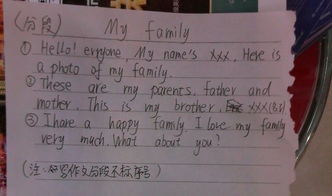 (分段) My family
① Hello! evryone. My name's xxx. Here is
a photo of my family.
② These are my parents, father and
mother. This is my brother, xxx(名字)
③ I have a happy family. I love my family
very much. What about you?
(注: 写作文分段不标序号)